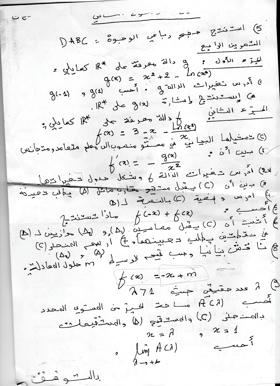 5) استنتج حجم رباعي الوجوه DABC
التمرين الرابع
الجزء الأول: g دالة معرفة على ℝ* كمايلي:
g(x) = x² + 2 - ln(x²)
1) أدرس تغيرات الدالة g. أحسب g(1) و g(-1)
2) استنتج إشارة g(x) على ℝ*.
الجزء الثاني: f دالة معرفة على ℝ* كمايلي:
f(x) = 3 - x - ln(x²)/x
(C) تمثيلها البياني في مستو منسوب إلى معلم متعامد ومتجانس
1) بين أن: f'(x) = - g(x)/x²
2) أدرس تغيرات الدالة f وشكل جدول تغيراتها
3) بين أن (C) يقبل مستقيم مقارب مائل (Δ) يطلب تعيينه
أدرس وضعية (C) بالنسبة لـ (Δ)
أحسب: f(-x) + f(x) ماذا تستنتج
أثبت أن (C) يقبل مماسين موازيين لـ (Δ)
في نقطتين يطلب تعيينهما، أرسم المنحنى (C)
ناقش بيانيا وحسب قيم الوسيط m حلول المعادلة:
f(x) = -x + m
λ عدد حقيقي حيث λ > 1
أحسب A(λ) مساحة الحيز من المستوي المحدد
بالمنحنى (C) والمستقيم (Δ) والمستقيمات
x = 1 , x = λ
أحسب lim A(λ)
λ→+∞
بالتوفيق